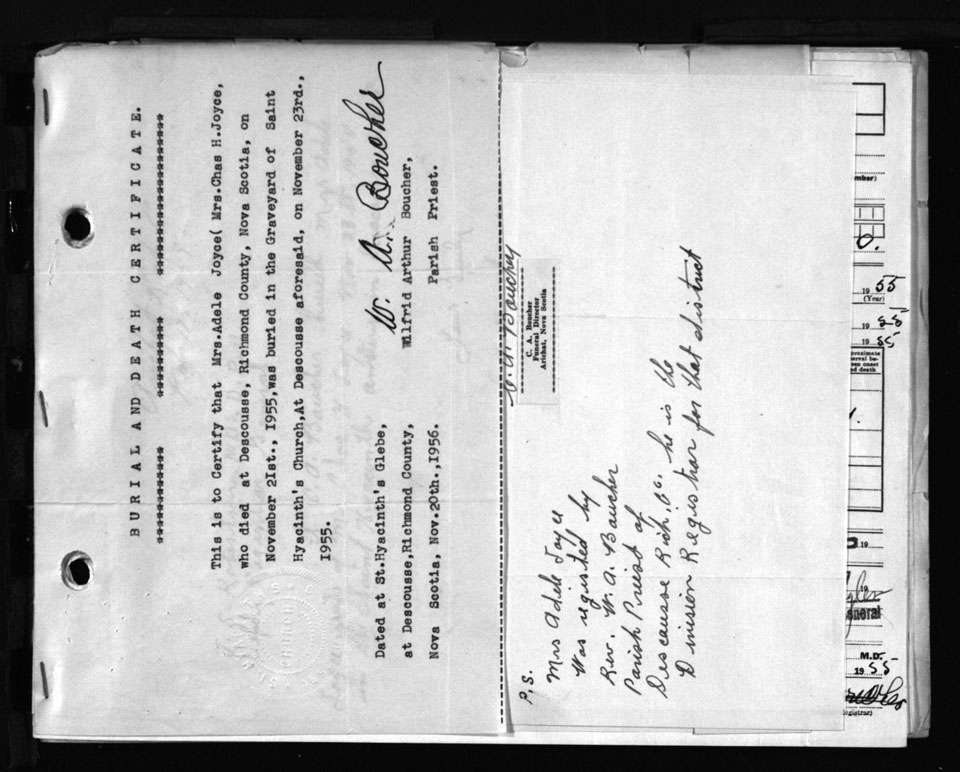 BURIAL AND DEATH CERTIFICATE.
This is to Certify that Mrs.Adele Joyce( Mrs.Chas H.Joyce,
who died at Descousse, Richmond County, Nova Scotia, on
November 2Ist., I955,was buried in the Graveyard of Saint
Hyacinth's Church,At Descousse aforesaid, on November 23rd.,
I955.
W. A. Boucher
Dated at St.Hyacinth's Glebe,
Wilfrid Arthur Boucher,
at Descousse,Richmond County,
Parish Priest.
Nova Scotia, Nov.20th.,I956.
C. A. Boucher
C. A. Boucher
Funeral Director
Arichat, Nova Scotia
P.S.
Mrs Adele Joyce
Was registed by
Rev. W. A. Boucher
Parish Priest of
Descousse Rich. Co. he is the
Division Registrar for that district
1955
(Year)
1955
1955
19
M.D.
1955